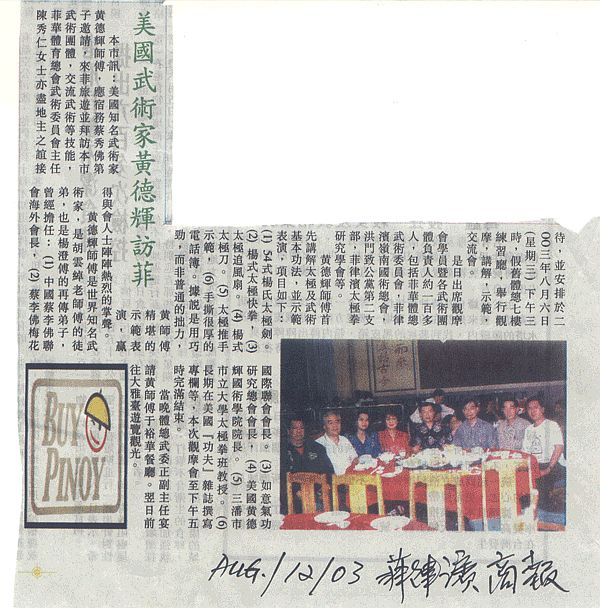 美國武術家黃德輝訪菲
本市訊：美國知名武術家
黃德輝師傅，應宿務蔡秀佛第
子邀請，來菲旅遊並拜訪本市
武術團體，交流武術等技能，
菲華體育總會武術委員會主任
陳秀仁女士亦盡地主之誼接
待，並安排於二
００三年八月六日
（星期三）下午三
時，假舊體總七樓
練習廳，舉行觀
摩，講解，示範，
交流會。
是日出席觀摩
會學員暨各武術團
體負責人約一百多
人，包括菲華體總
武術委員會，菲律
濱嶺南國術總會，
洪門致公黨第二支
部，菲律濱太極拳
研究學會等。
黃德輝師傅首
先講解太極及武術
基本功法，並示範
表演，項目如下：
(1) 54式楊氏太極劍。
(2) 楊式太極快拳，(3)
太極追風扇。(4) 楊式
太極刀。(5) 太極推手
示範，(6) 手撕很厚的
電話簿。據說是用巧
勁，而非普通的拙力，
黃師傅
精堪的
示範表
演，贏
得與會人士陣陣熱烈的掌聲。
黃德輝師傅是世界知名武
術家，是胡雲綽老師傅的徒
弟，也是楊澄傅的再傳弟子，
曾經擔任：(1) 中國蔡李佛聯
會海外會長，(2) 蔡李佛梅花
國際聯會會長。(3) 如意氣功
研究總會會長，(4) 美國黃德
輝國術學院院長。(5) 三潘市
市立大學太極拳班教授。(6)
長期在美國『功夫』雜誌撰寫
專欄等，本次觀摩會至下午五
時完滿結束。
當晚體總武委正副主任宴
請黃師傅于裕華餐廳。翌日前
往大雅臺遊覽觀光。
BUY
PINOY
AUG./12/03 菲律濱商報